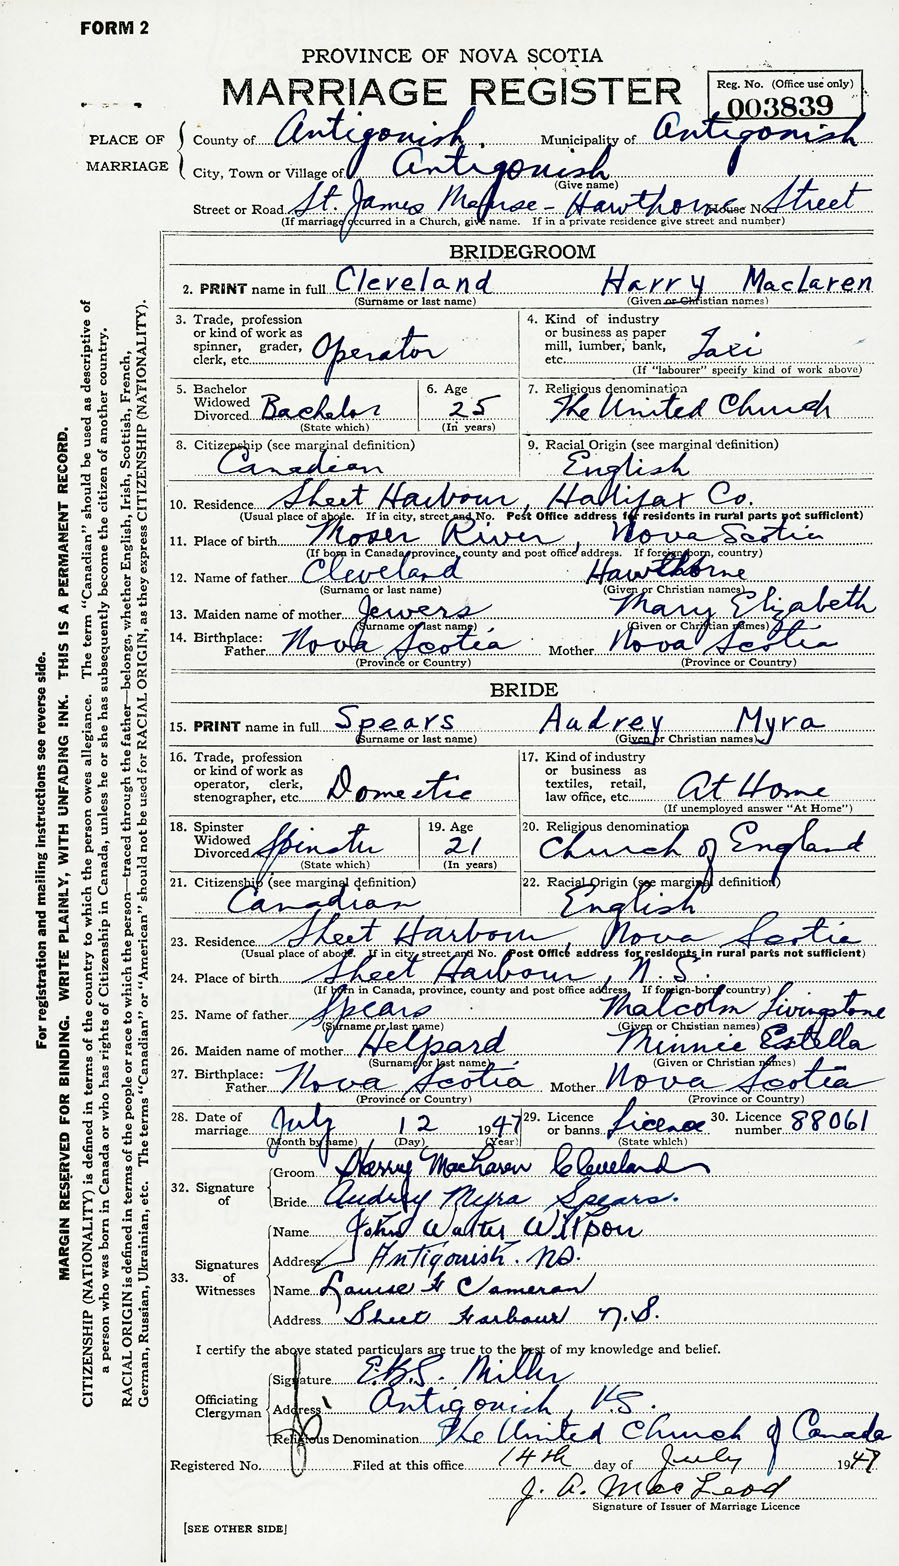 FORM 2
PROVINCE OF NOVA SCOTIA
MARRIAGE REGISTER
Reg. No. (Office use only)
003839
PLACE OF MARRIAGE
County of Antigonish. Municipality of Antigonish
City, Town or Village of Antigonish
(Give name)
Street or Road St. James Manse - Hawthorne Street House No.
(If marriage occurred in a Church, give name. If in a private residence give street and number)
BRIDEGROOM
2. PRINT name in full Cleveland Harry Maclaren
(Surname or last name) (Given or Christian names)
3. Trade, profession or kind of work as spinner, grader, clerk, etc. Operator
4. Kind of industry or business as paper mill, lumber, bank, etc. Taxi
(If "labourer" specify kind of work above)
5. Bachelor Widowed Divorced Bachelor
(State which)
6. Age 25
(In years)
7. Religious denomination The United Church
8. Citizenship (see marginal definition) Canadian
9. Racial Origin (see marginal definition) English
10. Residence Sheet Harbour, Halifax Co.
(Usual place of abode. If in city, street and No. Post Office address for residents in rural parts not sufficient)
11. Place of birth Moser River, Nova Scotia
(If born in Canada, province, county and post office address. If foreign-born, country)
12. Name of father Cleveland Hawthorne
(Surname or last name) (Given or Christian names)
13. Maiden name of mother Jewers Mary Elizabeth
(Surname or last name) (Given or Christian names)
14. Birthplace: Father Nova Scotia Mother Nova Scotia
(Province or Country) (Province or Country)
BRIDE
15. PRINT name in full Spears Audrey Myra
(Surname or last name) (Given or Christian names)
16. Trade, profession or kind of work as operator, clerk, stenographer, etc. Domestic
17. Kind of industry or business as textiles, retail, law office, etc. At Home
(If unemployed answer "At Home")
18. Spinster Widowed Divorced Spinster
(State which)
19. Age 21
(In years)
20. Religious denomination Church of England
21. Citizenship (see marginal definition) Canadian
22. Racial Origin (see marginal definition) English
23. Residence Sheet Harbour, Nova Scotia
(Usual place of abode. If in city, street and No. Post Office address for residents in rural parts not sufficient)
24. Place of birth Sheet Harbour, N.S.
(If born in Canada, province, county and post office address. If foreign-born country)
25. Name of father Spears Malcolm Livingstone
(Surname or last name) (Given or Christian names)
26. Maiden name of mother Helpard Minnie Estella
(Surname or last name) (Given or Christian names)
27. Birthplace: Father Nova Scotia Mother Nova Scotia
(Province or Country) (Province or Country)
28. Date of marriage July 12 1947
(Month by name) (Day) (Year)
29. Licence or banns Licence
(State which)
30. Licence number 88061
32. Signature of
Groom Harry MacLaren Cleveland
Bride Audrey Myra Spears.
33. Signatures of Witnesses
Name John Walter
Address Antigonish. NS.
Name Louise F Cameron
Address Sheet Harbour N.S.
I certify the above stated particulars are true to the best of my knowledge and belief.
Officiating Clergyman
Signature E.B.S. Miller
Address Antigonish, N.S.
Religious Denomination The United Church of Canada
Registered No. Filed at this office 14th day of July 1947
J. A. MacLeod
Signature of Issuer of Marriage Licence
[SEE OTHER SIDE]
For registration and mailing instructions see reverse side.
MARGIN RESERVED FOR BINDING. WRITE PLAINLY, WITH UNFADING INK. THIS IS A PERMANENT RECORD.
CITIZENSHIP (NATIONALITY) is defined in terms of the country to which the person owes allegiance. The term "Canadian" should be used as descriptive of
a person who was born in Canada or who has rights of Citizenship in Canada, unless he or she has subsequently become the citizen of another country.
RACIAL ORIGIN is defined in terms of the people or race to which the person—traced through the father—belongs, whether English, Irish, Scottish, French,
German, Russian, Ukrainian, etc. The terms "Canadian" or "American" should not be used for RACIAL ORIGIN, as they express CITIZENSHIP (NATIONALITY).